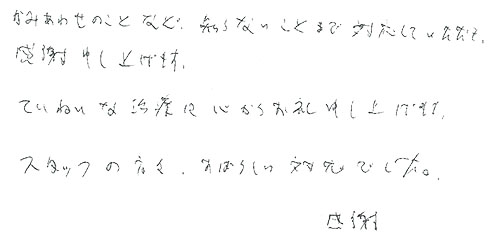 かみあわせのことなど、知らないことまで対応していただき、
感謝申し上げます。
ていねいな治療に心からお礼申し上げます。
スタッフの方々、すばらしい対応でした。
感謝